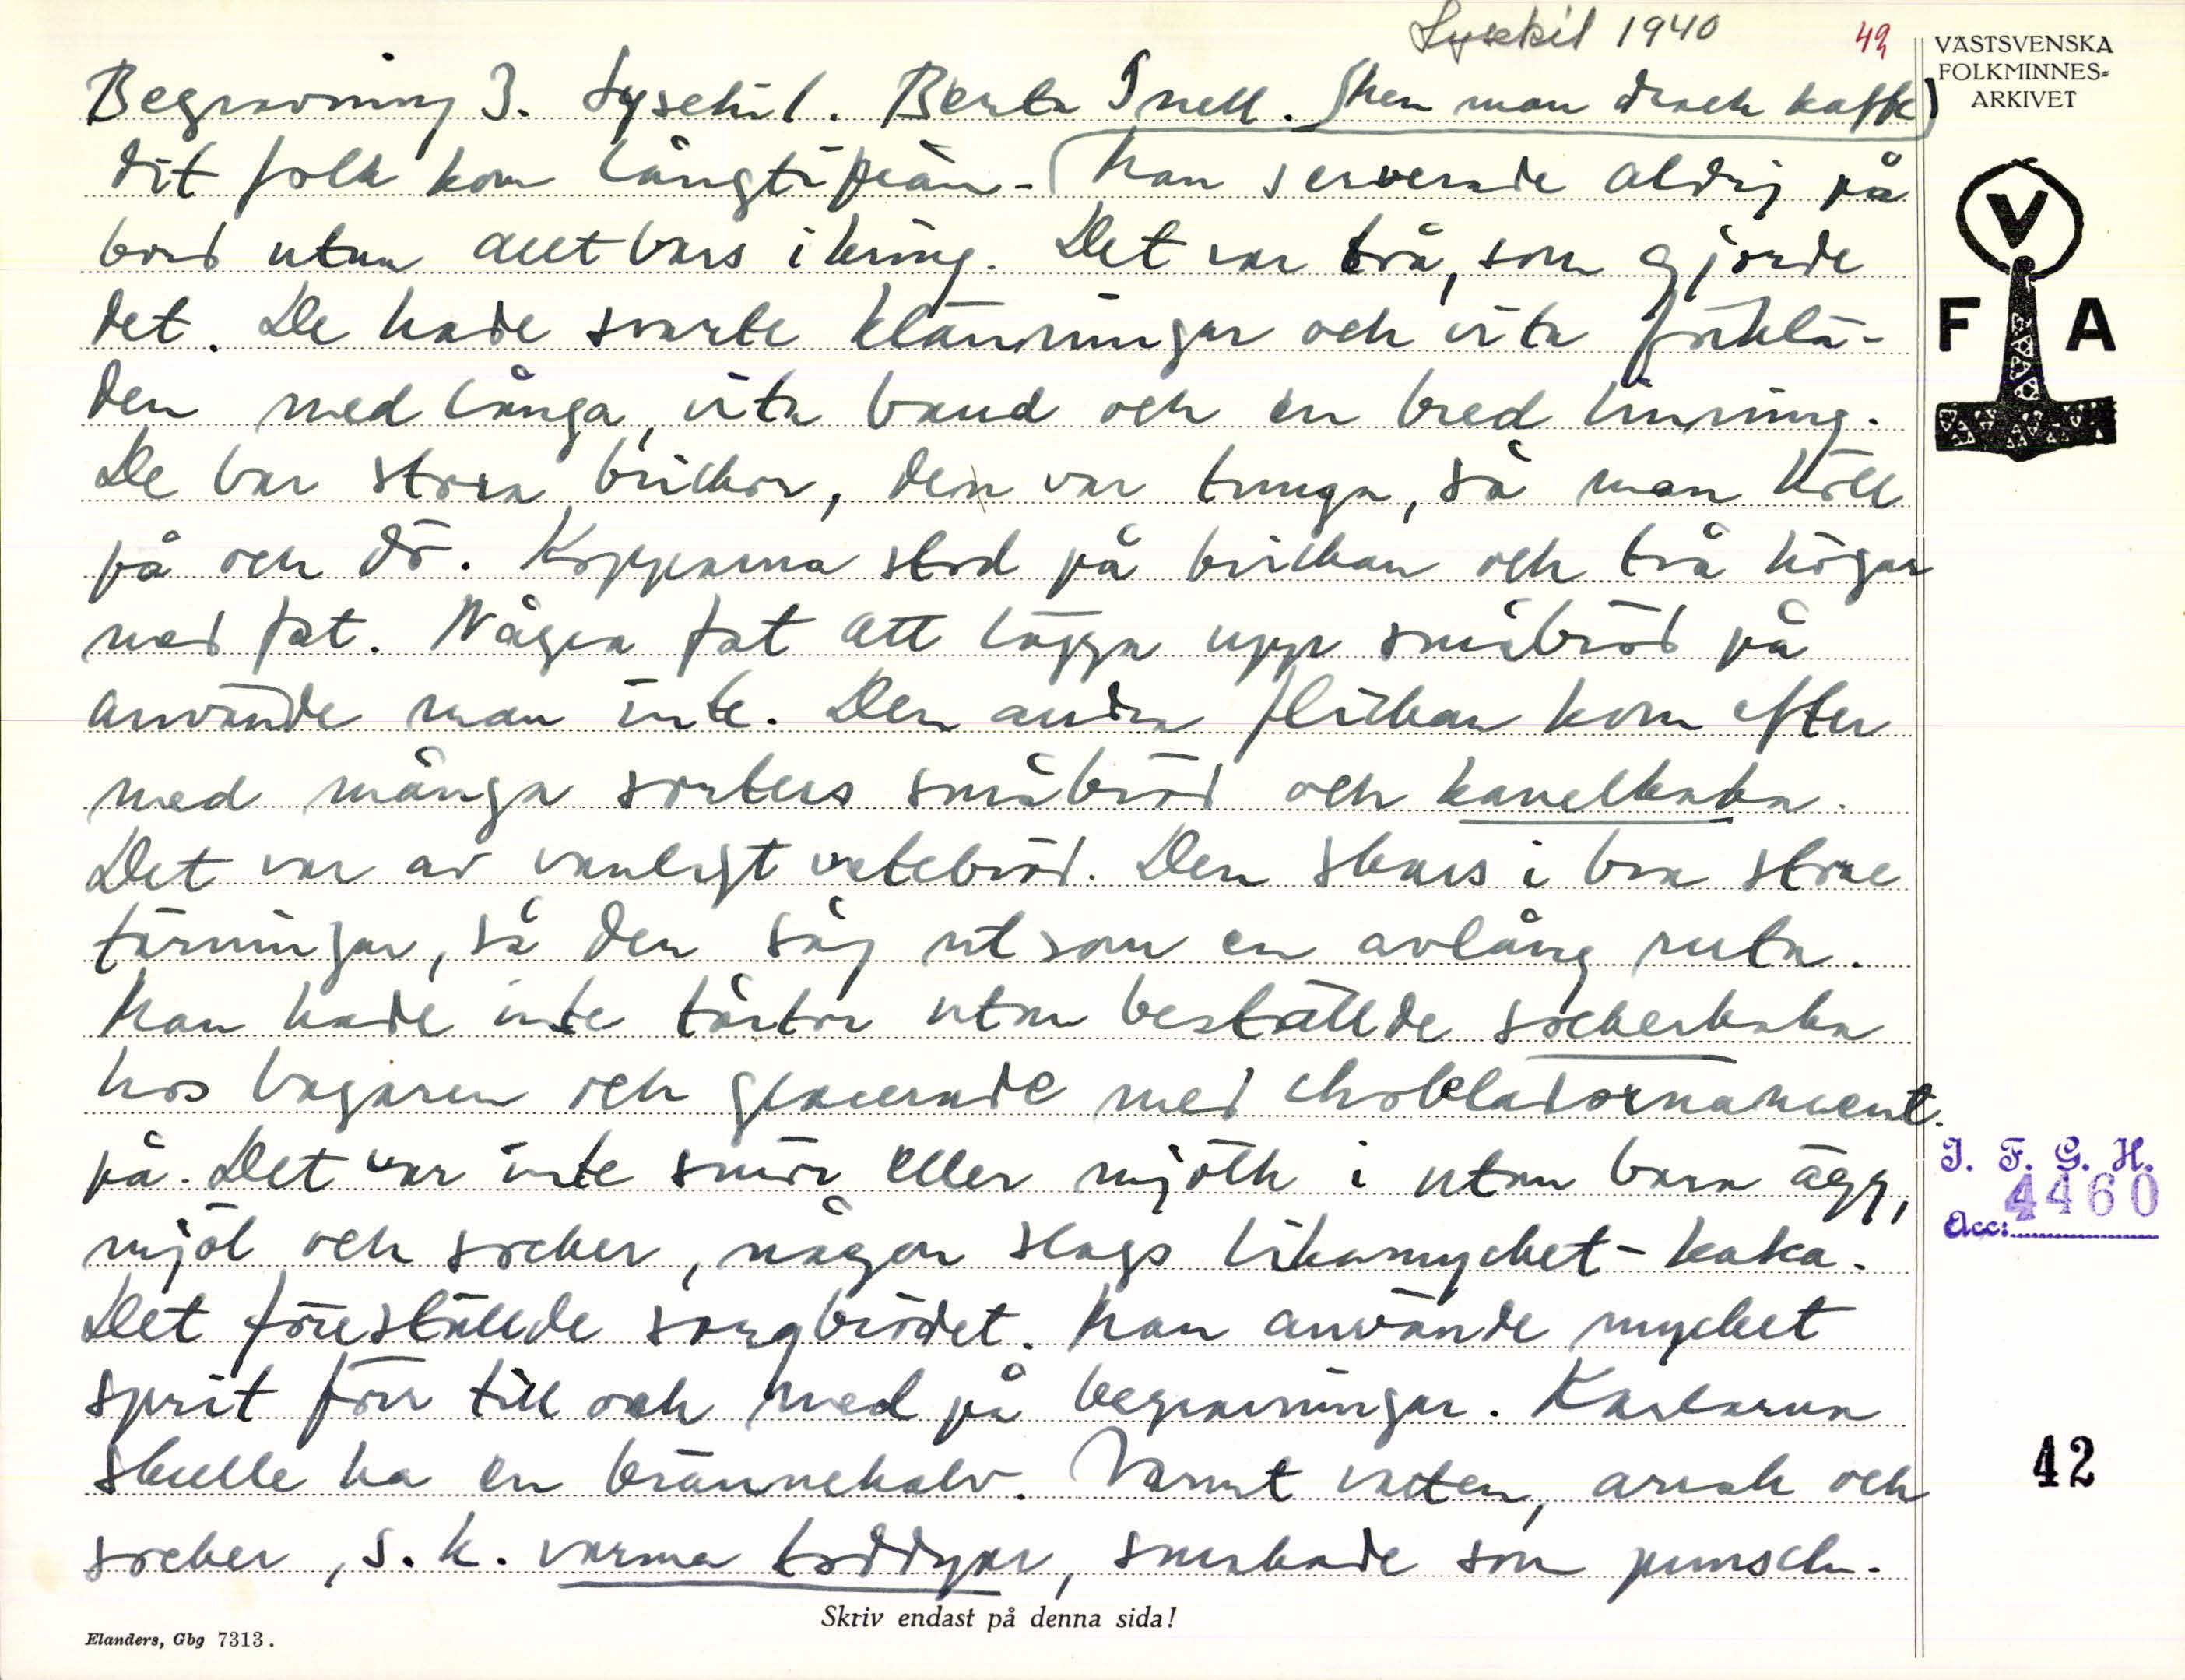 Lysekil 1940
42
VÄSTSVENSKA
FOLKMINNES-
ARKIVET
Begravning 3. Lysekil. Berta Snell. (Men man drack kaffe)
dit folk kom långtifrån. Man serverade aldrig på
bord utan allt bars ikring. Det var två, som gjorde
det. De hade svarta klänningar och vita förklä-
den med långa, vita band och en bred linning.
De bar stora brickor, den var tunga, så man höll
på och dö. Kopparna stod på brickan och två högar
med fat. Några fat att lägga upp småbröd på
använde man inte. Den andra flickan kom efter
med många sorters småbröd och kanelkaka.
Det var av vanligt vetebröd. Den skars i bra stora
tärningar, så den såg ut som en avlång ruta.
Man hade inte tårtor utan beställde sockerkaka
hos bagaren och glacerade med chokladornament
på. Det var inte smör eller mjölk i utan bara ägg,
mjöl och socker, någon slags likamycket-kaka.
Det föreställde sorgbrödet. Man använde mycket
sprit förr till och med på begravningar. Karlarna
skulle ha en brännehalv. Varmt vatten, arrak och
socker, s.k. varma toddyar, smakade som punsch.
V
F A
I. F. G. H.
4460
Acc:
42
Skriv endast på denna sida!
Elanders, Gbg 7313.